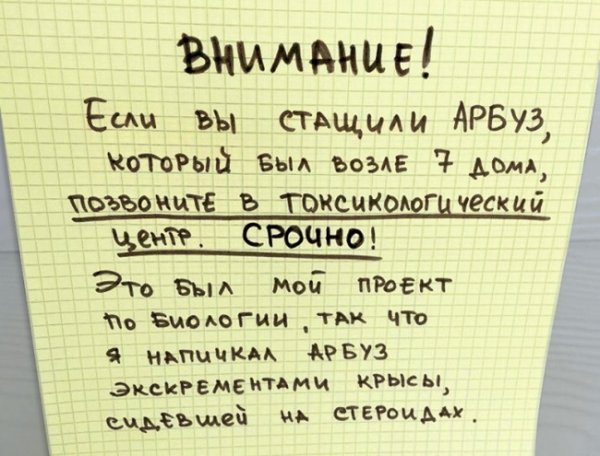 ВНИМАНИЕ!
Если вы стащили АРБУЗ,
который был возле 7 дома,
позвоните в токсикологический
центр. СРОЧНО!
Это был мой проект
по биологии, так что
я напичкал арбуз
экскрементами крысы,
сидевшей на стероидах.